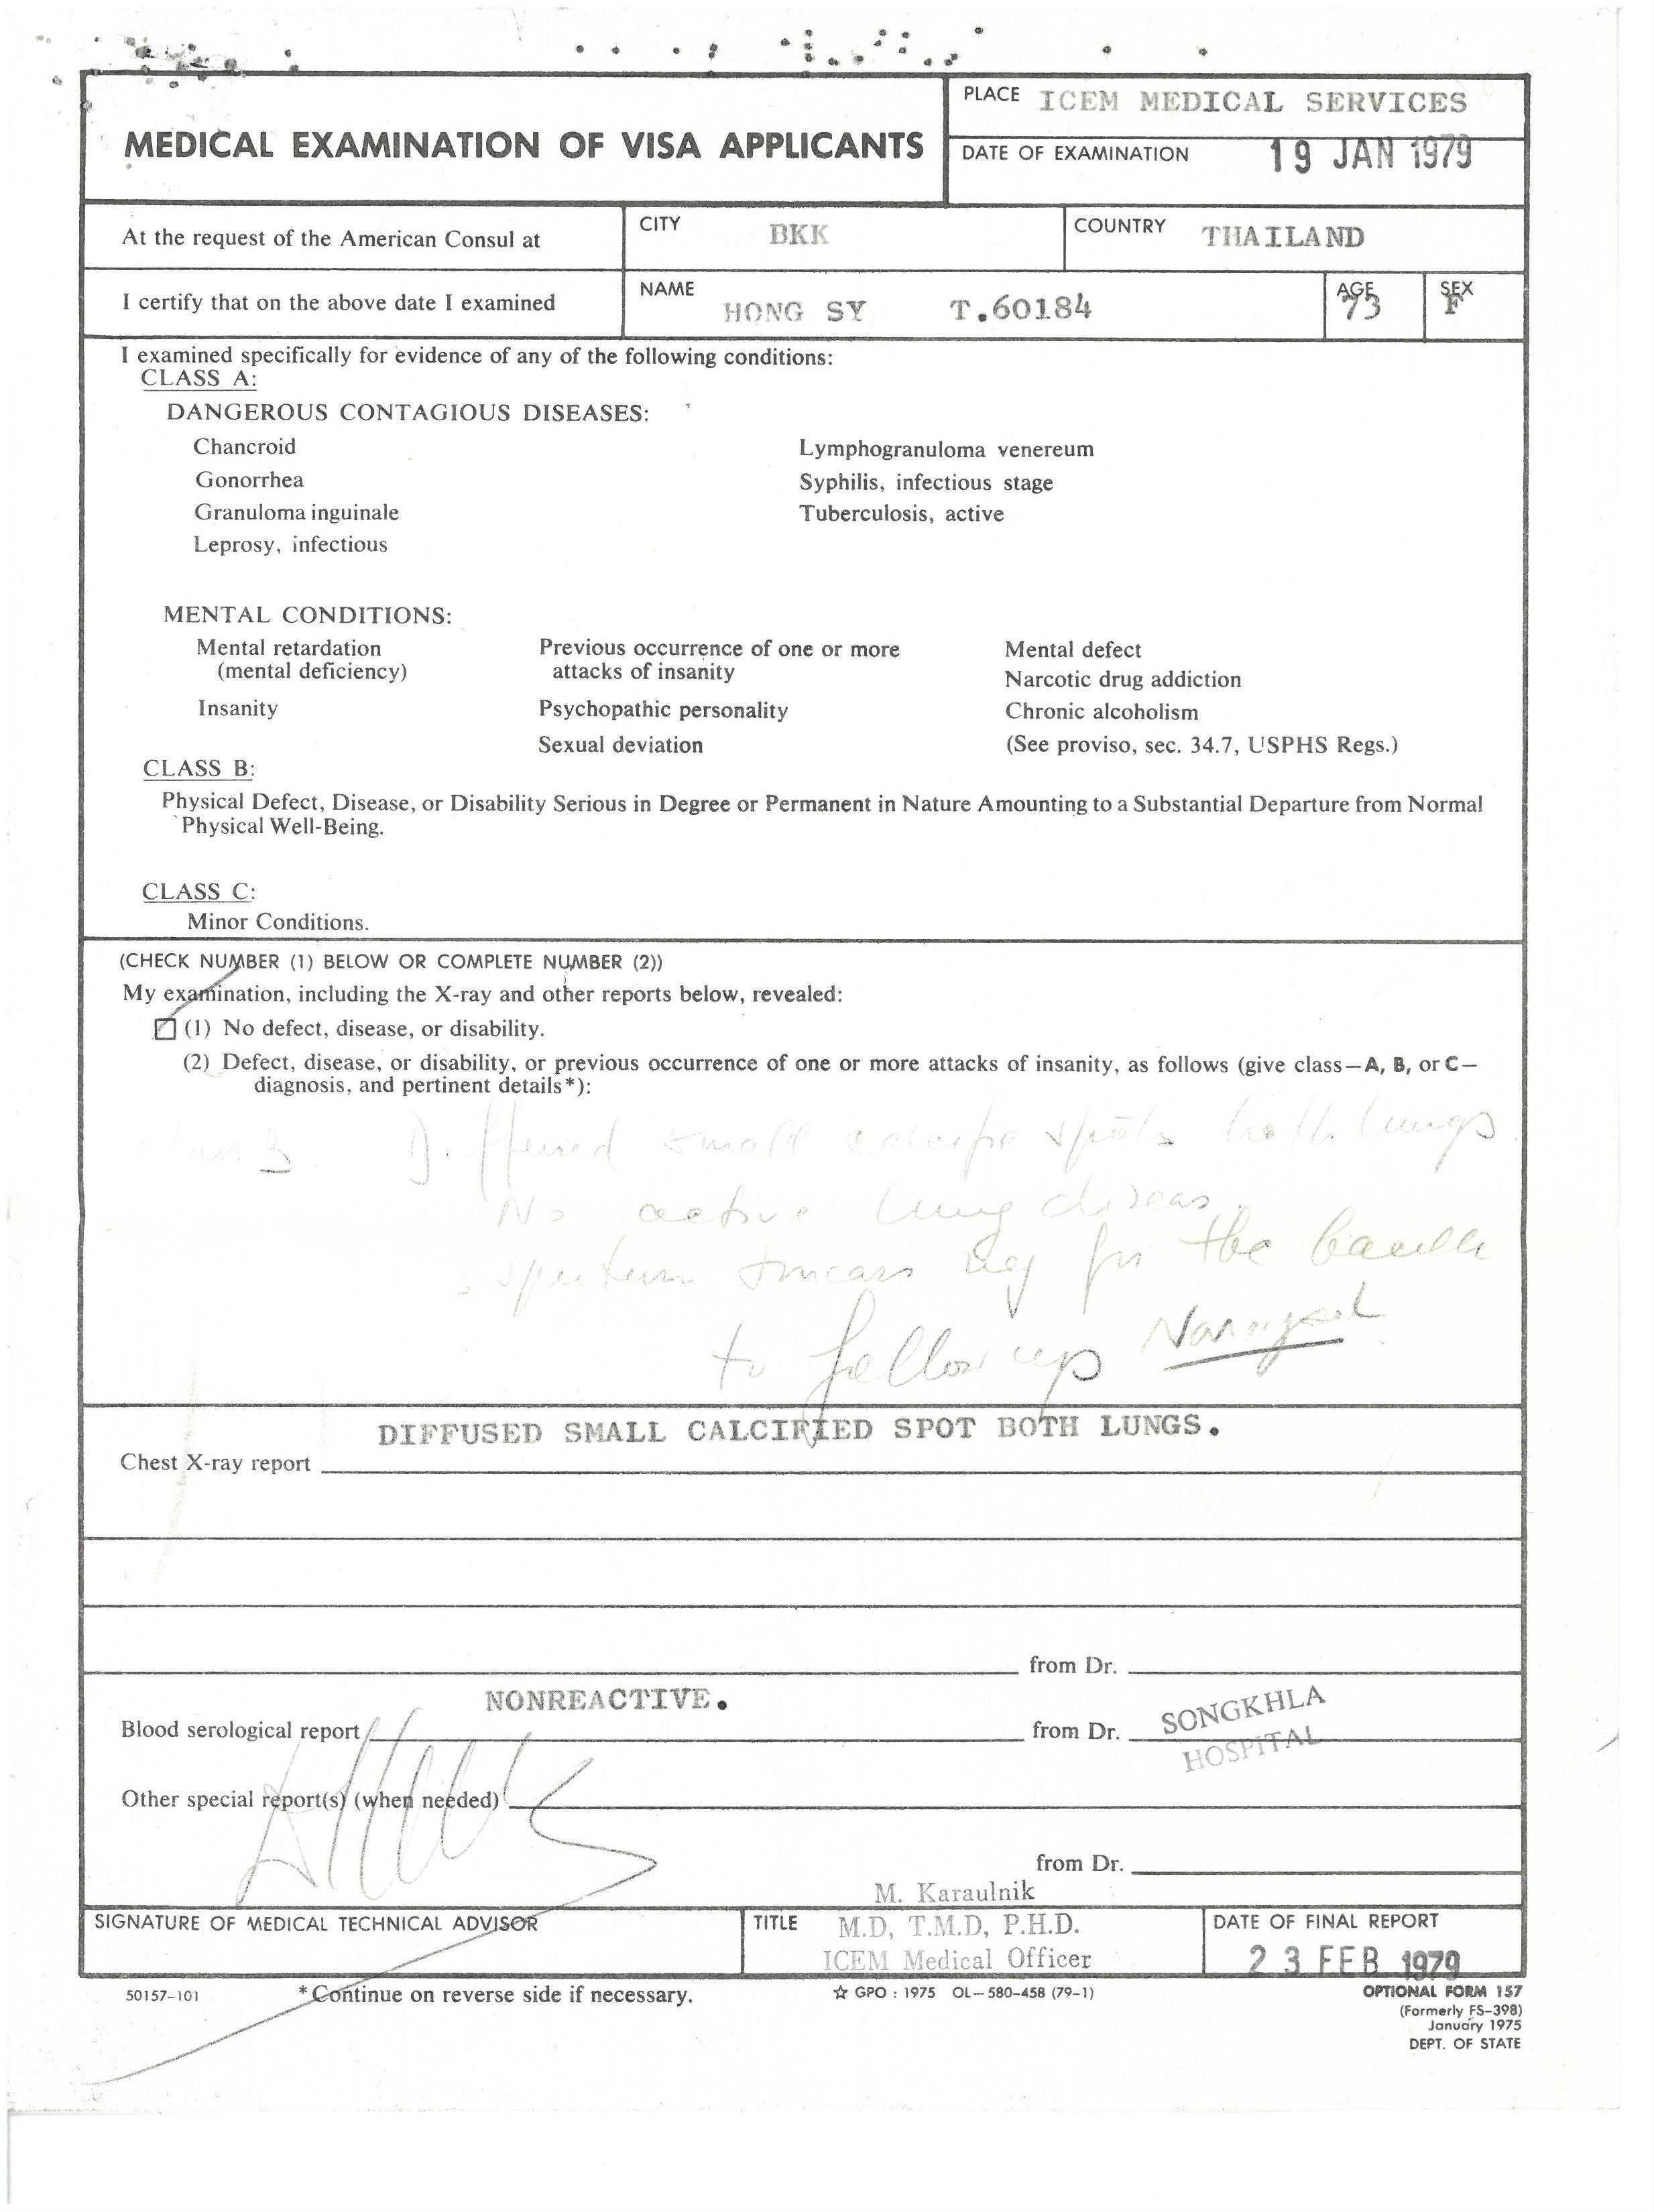 MEDICAL EXAMINATION OF VISA APPLICANTS
PLACE ICEM MEDICAL SERVICES
DATE OF EXAMINATION 19 JAN 1979
At the request of the American Consul at
CITY BKK
COUNTRY THAILAND
I certify that on the above date I examined
NAME HONG SY T.60184
AGE 73
SEX F
I examined specifically for evidence of any of the following conditions:
CLASS A:
DANGEROUS CONTAGIOUS DISEASES:
Chancroid Lymphogranuloma venereum
Gonorrhea Syphilis, infectious stage
Granuloma inguinale Tuberculosis, active
Leprosy, infectious
MENTAL CONDITIONS:
Mental retardation
(mental deficiency)
Insanity
Previous occurrence of one or more
attacks of insanity
Psychopathic personality
Sexual deviation
Mental defect
Narcotic drug addiction
Chronic alcoholism
(See proviso, sec. 34.7, USPHS Regs.)
CLASS B:
Physical Defect, Disease, or Disability Serious in Degree or Permanent in Nature Amounting to a Substantial Departure from Normal
Physical Well-Being.
CLASS C:
Minor Conditions.
(CHECK NUMBER (1) BELOW OR COMPLETE NUMBER (2))
My examination, including the X-ray and other reports below, revealed:
(1) No defect, disease, or disability.
(2) Defect, disease, or disability, or previous occurrence of one or more attacks of insanity, as follows (give class—A, B, or C—
diagnosis, and pertinent details*):
Diffused small spots both lungs
No active lung diseas
sputum smears neg for tbc bacilli
to follow up
DIFFUSED SMALL CALCIFIED SPOT BOTH LUNGS.
Chest X-ray report
from Dr.
NONREACTIVE.
Blood serological report from Dr. SONGKHLA
HOSPITAL
Other special report(s) (when needed)
from Dr.
M. Karaulnik
SIGNATURE OF MEDICAL TECHNICAL ADVISOR
TITLE M.D, T.M.D, P.H.D.
ICEM Medical Officer
DATE OF FINAL REPORT
23 FEB 1979
50157-101
*Continue on reverse side if necessary.
☆ GPO : 1975 OL—580-458 (79-1)
OPTIONAL FORM 157
(Formerly FS-398)
January 1975
DEPT. OF STATE